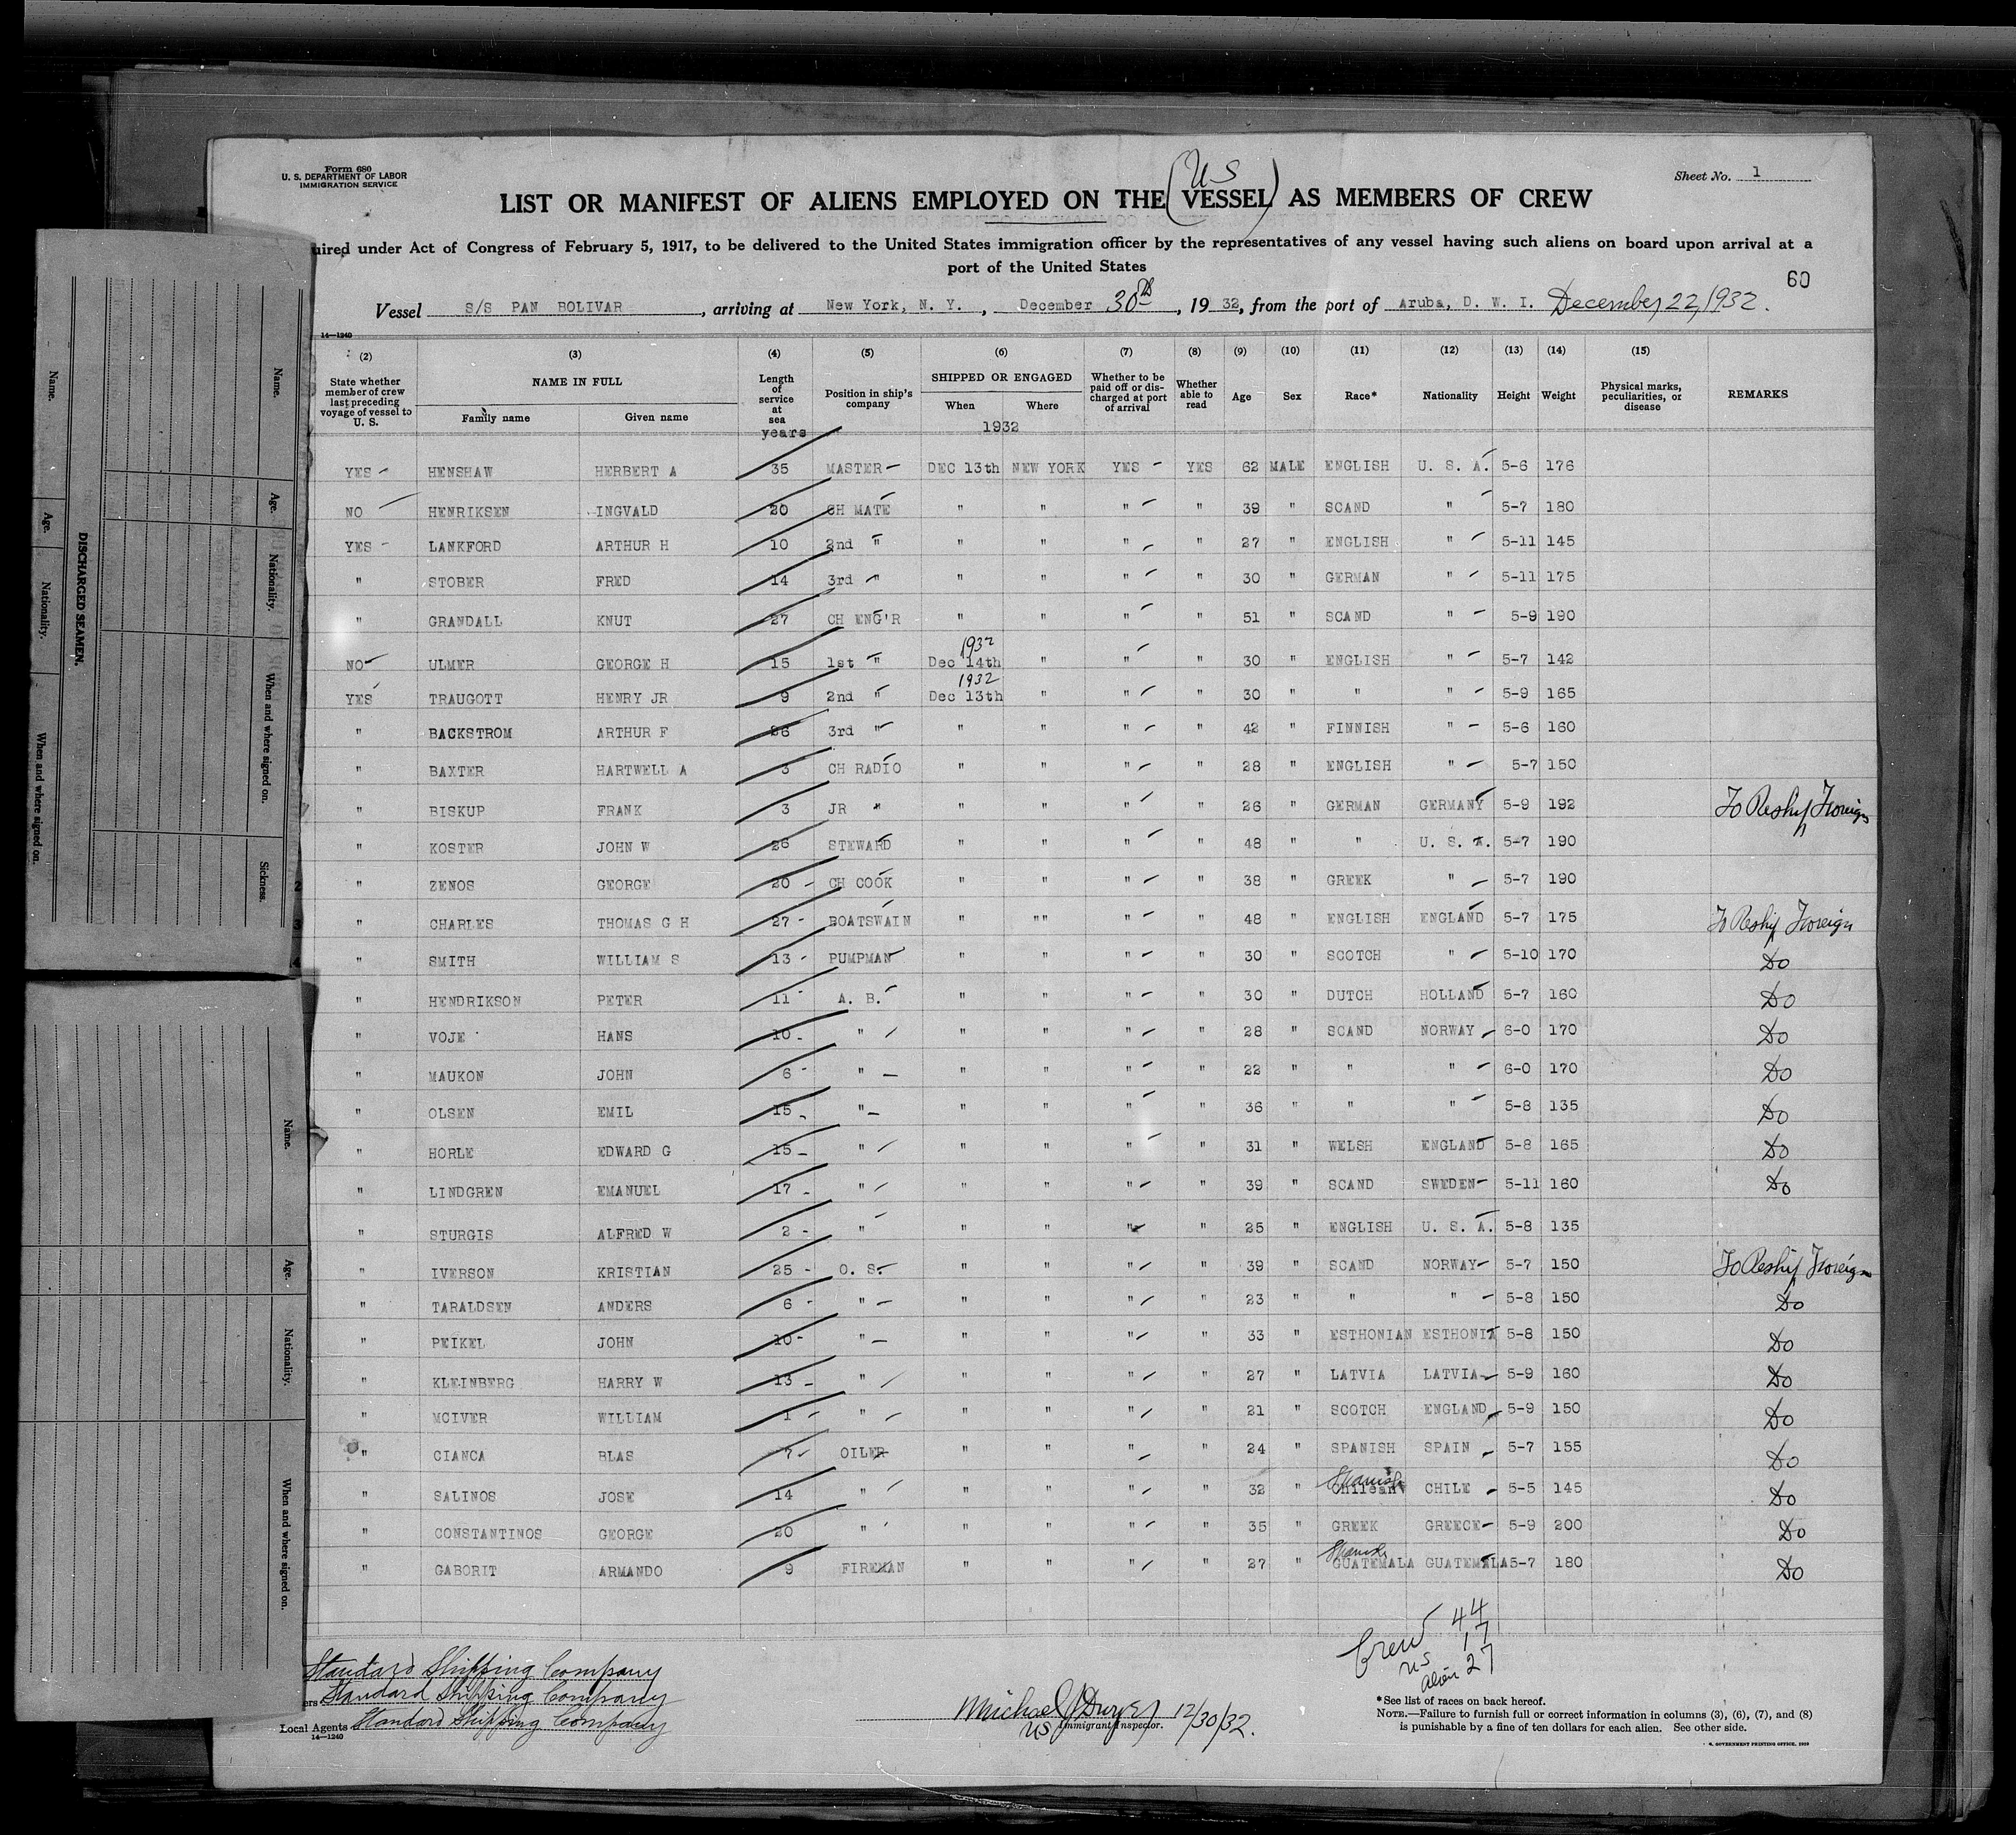 Form 680
U. S. DEPARTMENT OF LABOR
IMMIGRATION SERVICE
Sheet No. 1
US
LIST OR MANIFEST OF ALIENS EMPLOYED ON THE (VESSEL) AS MEMBERS OF CREW
uired under Act of Congress of February 5, 1917, to be delivered to the United States immigration officer by the representatives of any vessel having such aliens on board upon arrival at a
port of the United States
60
Vessel S/S PAN BOLIVAR, arriving at New York, N. Y., December 30th, 1932, from the port of Aruba, D. W. I. December, 22, 1932.
14—1240
(2) (3) (4) (5) (6) (7) (8) (9) (10) (11) (12) (13) (14) (15)
State whether member of crew last preceding voyage of vessel to U. S. NAME IN FULL Family name Given name Length of service at sea Position in ship's company SHIPPED OR ENGAGED When Where Whether to be paid off or discharged at port of arrival Whether able to read Age Sex Race* Nationality Height Weight Physical marks, peculiarities, or disease REMARKS
years 1932
YES HENSHAW HERBERT A 35 MASTER DEC 13th NEW YORK YES YES 62 MALE ENGLISH U. S. A. 5-6 176
NO HENRIKSEN INGVALD 20 CH MATE " " " " 39 " SCAND " 5-7 180
YES LANKFORD ARTHUR H 10 2nd " " " " " 27 " ENGLISH " 5-11 145
" STOBER FRED 14 3rd " " " " " 30 " GERMAN " 5-11 175
" GRANDALL KNUT 27 CH ENG'R " " " " 51 " SCAND " 5-9 190
NO ULMER GEORGE H 15 1st " 1932 Dec 14th " " " 30 " ENGLISH " 5-7 142
YES TRAUGOTT HENRY JR 9 2nd " 1932 Dec 13th " " " 30 " " " 5-9 165
" BACKSTROM ARTHUR F 26 3rd " " " " " 42 " FINNISH " 5-6 160
" BAXTER HARTWELL A 3 CH RADIO " " " " 28 " ENGLISH " 5-7 150
" BISKUP FRANK 3 JR " " " " " 26 " GERMAN GERMANY 5-9 192 To Reship Foreign
" KOSTER JOHN W 26 STEWARD " " " " 48 " " U. S. A. 5-7 190
" ZENOS GEORGE 20 CH COOK " " " " 38 " GREEK " 5-7 190
" CHARLES THOMAS G H 27 BOATSWAIN " "" " " 48 " ENGLISH ENGLAND 5-7 175 To Reship Foreign
" SMITH WILLIAM S 13 PUMPMAN " " " " 30 " SCOTCH " 5-10 170 Do
" HENDRIKSON PETER 11 A. B. " " " " 30 " DUTCH HOLLAND 5-7 160 Do
" VOJE HANS 10 " " " " " 28 " SCAND NORWAY 6-0 170 Do
" MAUKON JOHN 6 " " " " " 22 " " " 6-0 170 Do
" OLSEN EMIL 15 " " " " " 36 " " " 5-8 135 Do
" HORLE EDWARD G 15 " " " " " 31 " WELSH ENGLAND 5-8 165 Do
" LINDGREN EMANUEL 17 " " " " " 39 " SCAND SWEDEN 5-11 160 Do
" STURGIS ALFRED W 2 " " " " " 25 " ENGLISH U. S. A. 5-8 135
" IVERSON KRISTIAN 25 O. S. " " " " 39 " SCAND NORWAY 5-7 150 To Reship Foreign
" TARALDSEN ANDERS 6 " " " " " 23 " " " 5-8 150 Do
" PEIKEL JOHN 10 " " " " " 33 " ESTHONIAN ESTHONIA 5-8 150 Do
" KLEINBERG HARRY W 13 " " " " " 27 " LATVIA LATVIA 5-9 160 Do
" MCIVER WILLIAM 1 " " " " " 21 " SCOTCH ENGLAND 5-9 150 Do
" CIANCA BLAS 7 OILER " " " " 24 " SPANISH SPAIN 5-7 155 Do
" SALINOS JOSE 14 " " " " " 32 " Spanish Chilean CHILE 5-5 145 Do
" CONSTANTINOS GEORGE 20 " " " " " 35 " GREEK GREECE 5-9 200 Do
" GABORIT ARMANDO 9 FIREMAN " " " " 27 " Spanish GUATEMALA GUATEMALA 5-7 180 Do
Crew 44
US 17
Alien 27
Standard Shipping Company
ers Standard Shipping Company
Local Agents Standard Shipping Company
14—1240
Michael J Dwyer 12/30/32.
US Immigrant Inspector.
*See list of races on back hereof.
NOTE.—Failure to furnish full or correct information in columns (3), (6), (7), and (8)
is punishable by a fine of ten dollars for each alien. See other side.
GOVERNMENT PRINTING OFFICE
DISCHARGED SEAMEN.
Name. Age. Nationality. When and where signed on.
Name. Age. Nationality. When and where signed on. Sickness.
Name. Age. Nationality. When and where signed on.